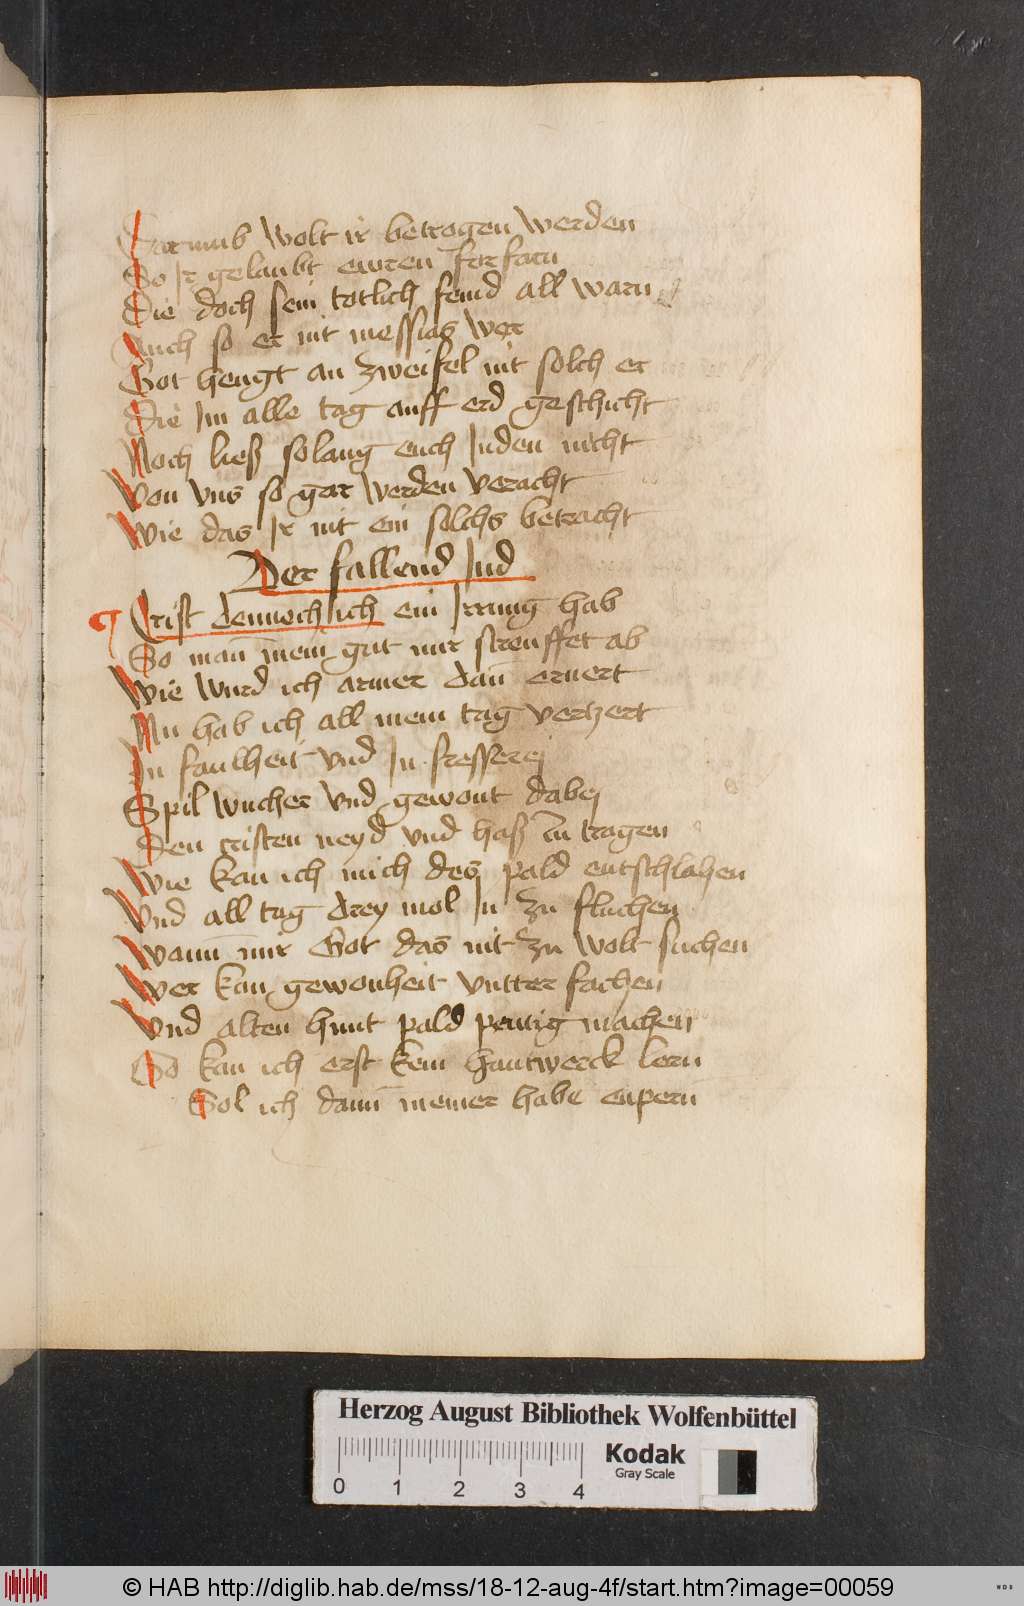 Darumb wolt ir betrogen werden
So Ir gelaubt ewren forfarn
Die doch sein totlich feind all warn
Auch so er nit messias wer
Got hengt an zweifel nit solch er
Die Im alle tag auff erd geschicht
Noch ließ solang euch Juden nicht
Von vns so gar werden veracht
Wie das Ir nit ein solchs betracht
Der fallend Jud
Crist dennoch ich ein Irrung hab
So man mein gut mir streuffet ab
Wie wurd ich armer dan ernert
Nu hab ich all mein tag vertzert
In faulheit vnd In fresserej
Spil wucher vnd gewont dabej
Den cristen neyd vnd haß zu tragen
Wie kan ich mich des pald entschlahen
Vnd all tag drey mol In zu fluchen
Wann mir Got das nit zu wolt suchen
Wer kan gewonheit vntter fachen
Vnd alten hunt pald pentig machen
So kan ich erst kein hantwerck lern
Sol ich dann meiner habe enpern
Herzog August Bibliothek Wolfenbüttel
Kodak
Gray Scale
0 1 2 3 4
© HAB http://diglib.hab.de/mss/18-12-aug-4f/start.htm?image=00059